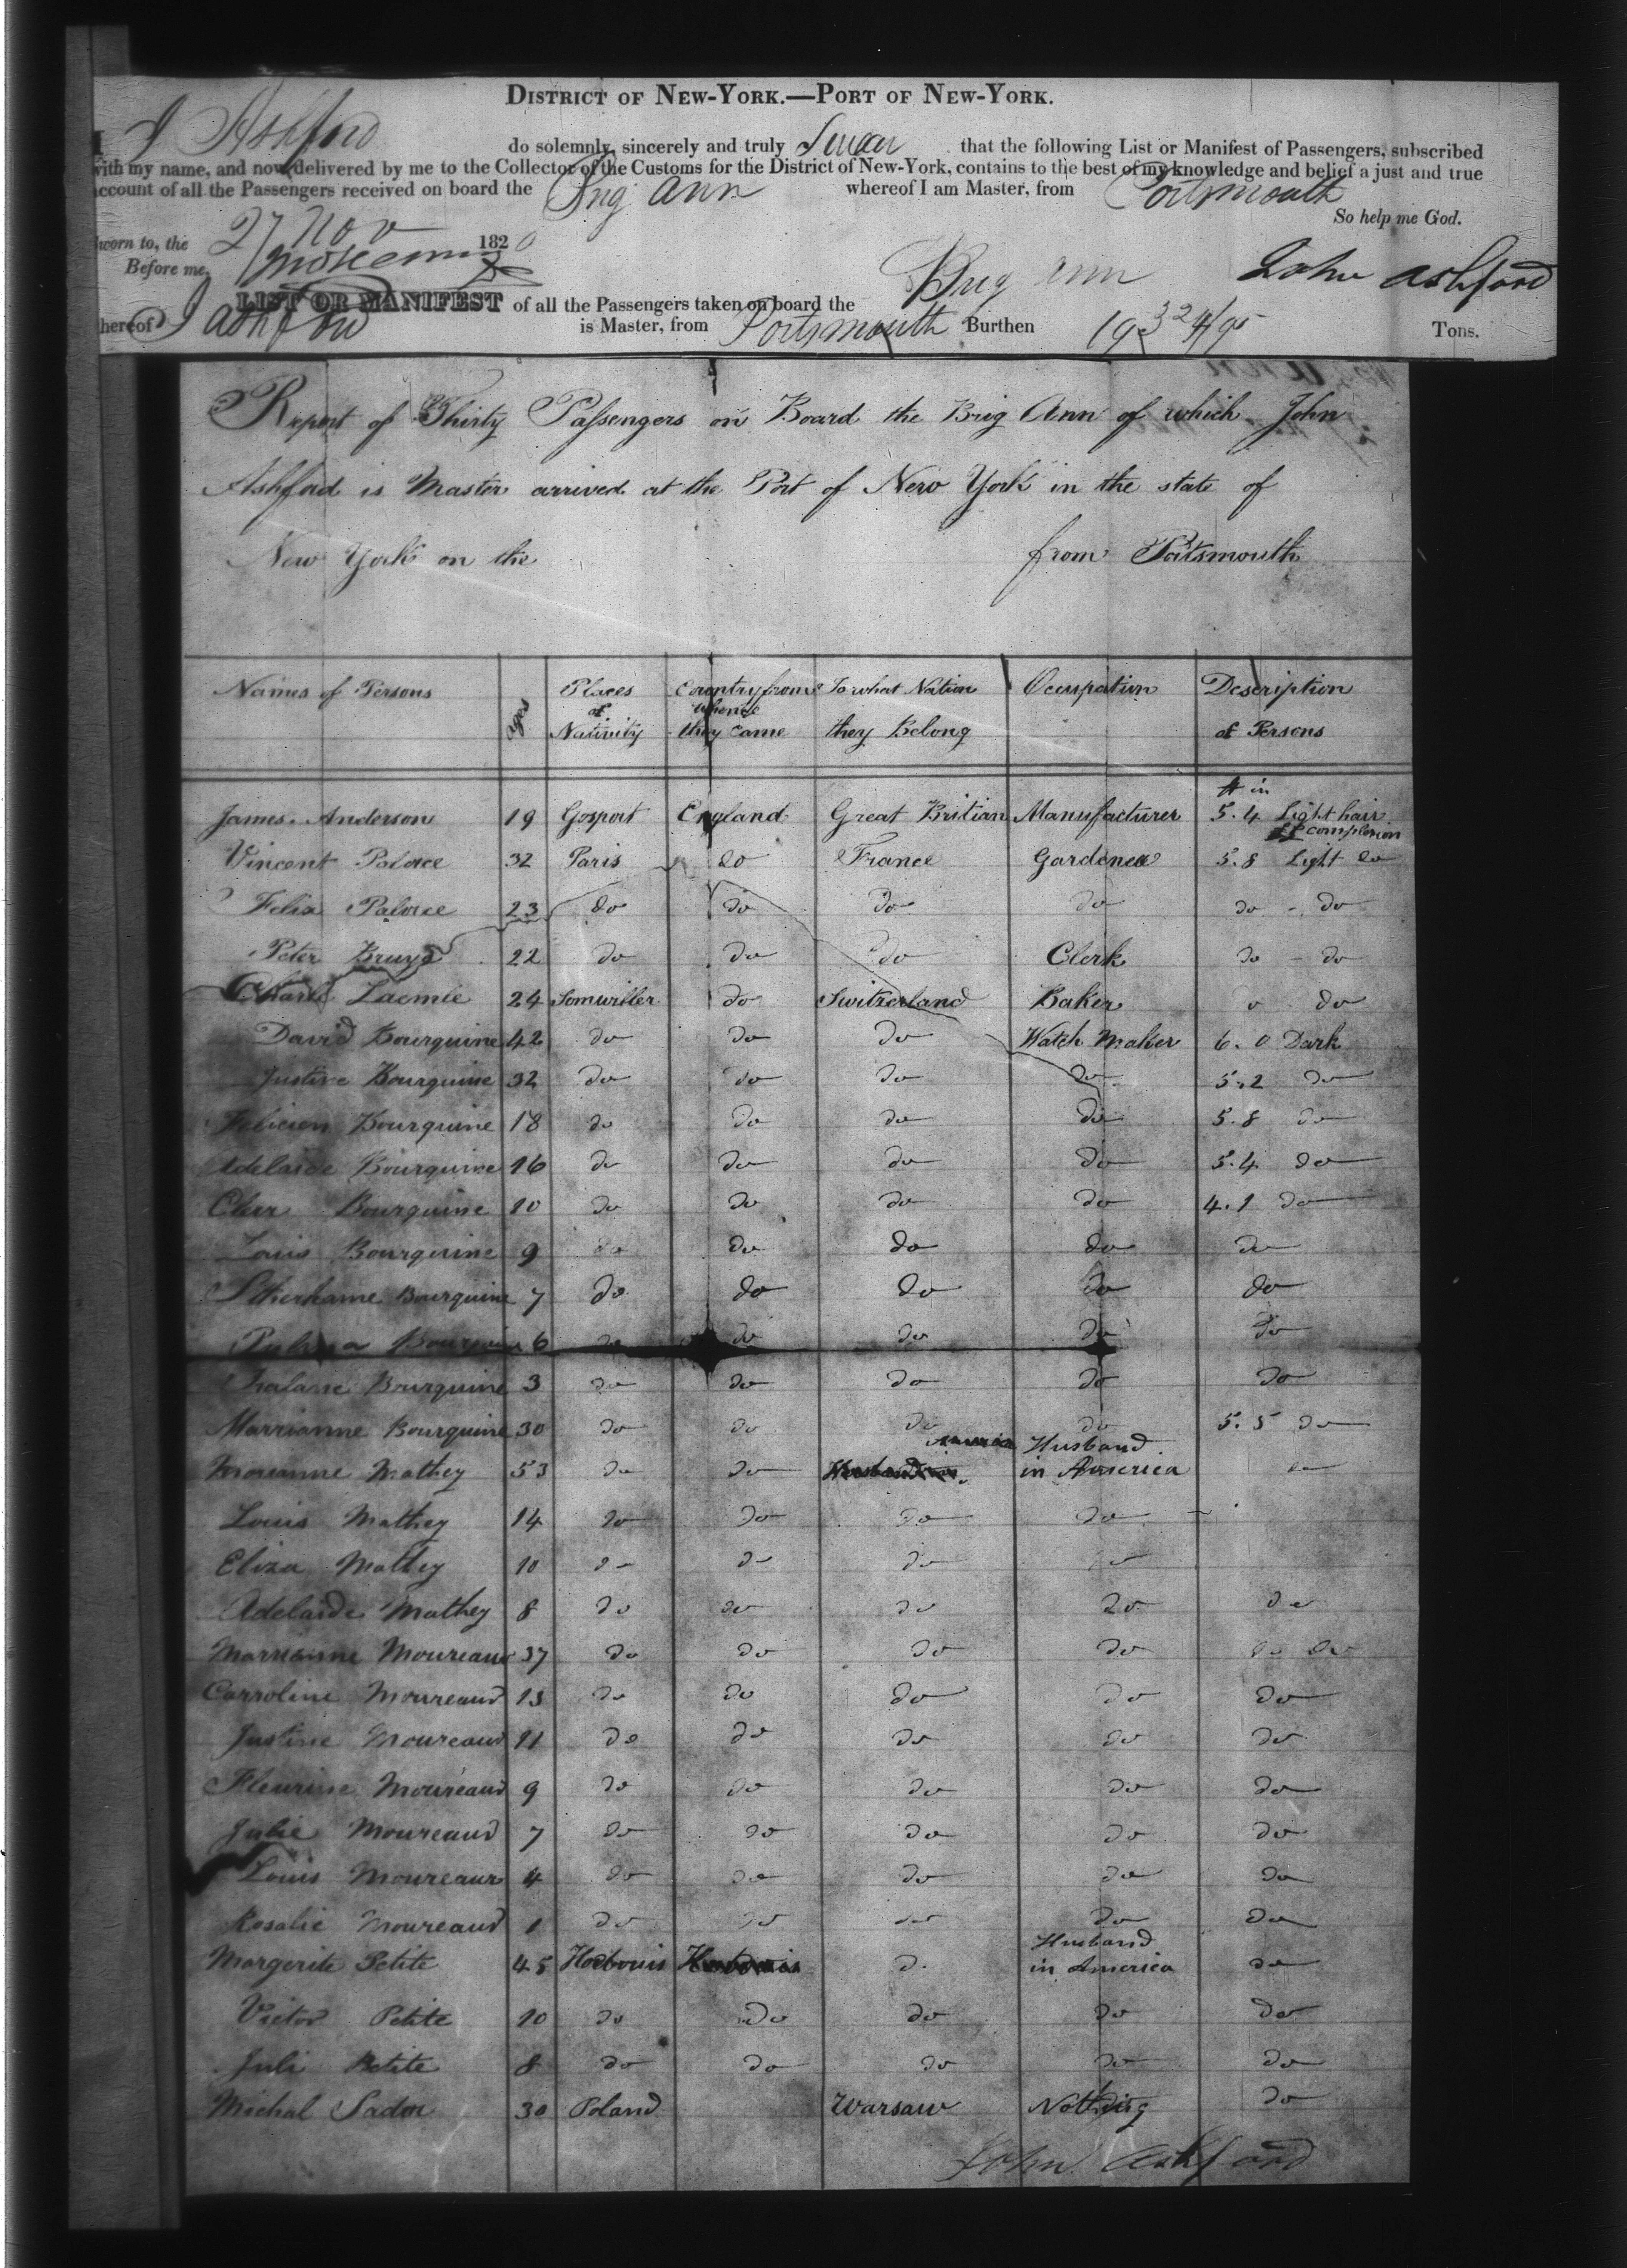 DISTRICT OF NEW-YORK.—PORT OF NEW-YORK.
I J Ashford do solemnly, sincerely and truly Swear that the following List or Manifest of Passengers, subscribed
with my name, and now delivered by me to the Collector of the Customs for the District of New-York, contains to the best of my knowledge and belief a just and true
account of all the Passengers received on board the Brig Ann whereof I am Master, from Portsmouth
So help me God.
Sworn to, the 27 Nov 1820
Before me,
John Ashford
LIST OR MANIFEST of all the Passengers taken on board the Brig Ann
whereof J Ashford is Master, from Portsmouth Burthen 193 24/95 Tons.
Report of Thirty Passengers on Board the Brig Ann of which John
Ashford is Master arrived at the Port of New York in the state of
New York on the from Portsmouth
Names of Persons ages Places of Nativity Country from whence they Came To what Nation they Belong Occupation Description of Persons
ft in
James Anderson 19 Gosport England Great Britian Manufacturer 5.4 Light hair
complexion
Vincent Palorce 32 Paris do France Gardener 5.8 Light do
Felix Palorce 23 do do do do do - do
Peter Bruyd 22 do do do Clerk do - do
Laemle 24 Somwiller do Switzerland Baker do
David Bourquine 42 do do do Watch Maker 6.0 Dark
Justine Bourquine 32 do do do do 5.2 do
Felicien Bourquine 18 do do do do 5.8 do
Adelaide Bourquine 16 do do do do 5.4 do
Bourquine 10 do do do do 4.1 do
Louis Bourquine 9 do do do do do
Bourquine 7 do do do do do
Bourquine 6 do do do do do
Bourquine 3 do do do do do
Marrianne Bourquine 30 do do do do 5.5 do
Husband
Morianne Mathey 53 do do in America do
Louis Mathey 14 do do do do
Eliza Mathey 10 do do do do
Adelaide Mathey 8 do do do do do
Marrianne Moureaud 37 do do do do do do
Carroline Moureaud 13 do do do do do
Justine Moureaud 11 do do do do do
Fleurine Moureaud 9 do do do do do
Julie Moureaud 7 do do do do do
Louis Moureaud 4 do do do do do
Rosalie Moureaud 1 do do do do do
Husband
Margerite Petite 45 Hodbouis in America do
Victor Petite 10 do do do do do
Juli Petite 8 do do do do do
Michal Sador 30 Poland Warsaw Nothing do
John Ashford